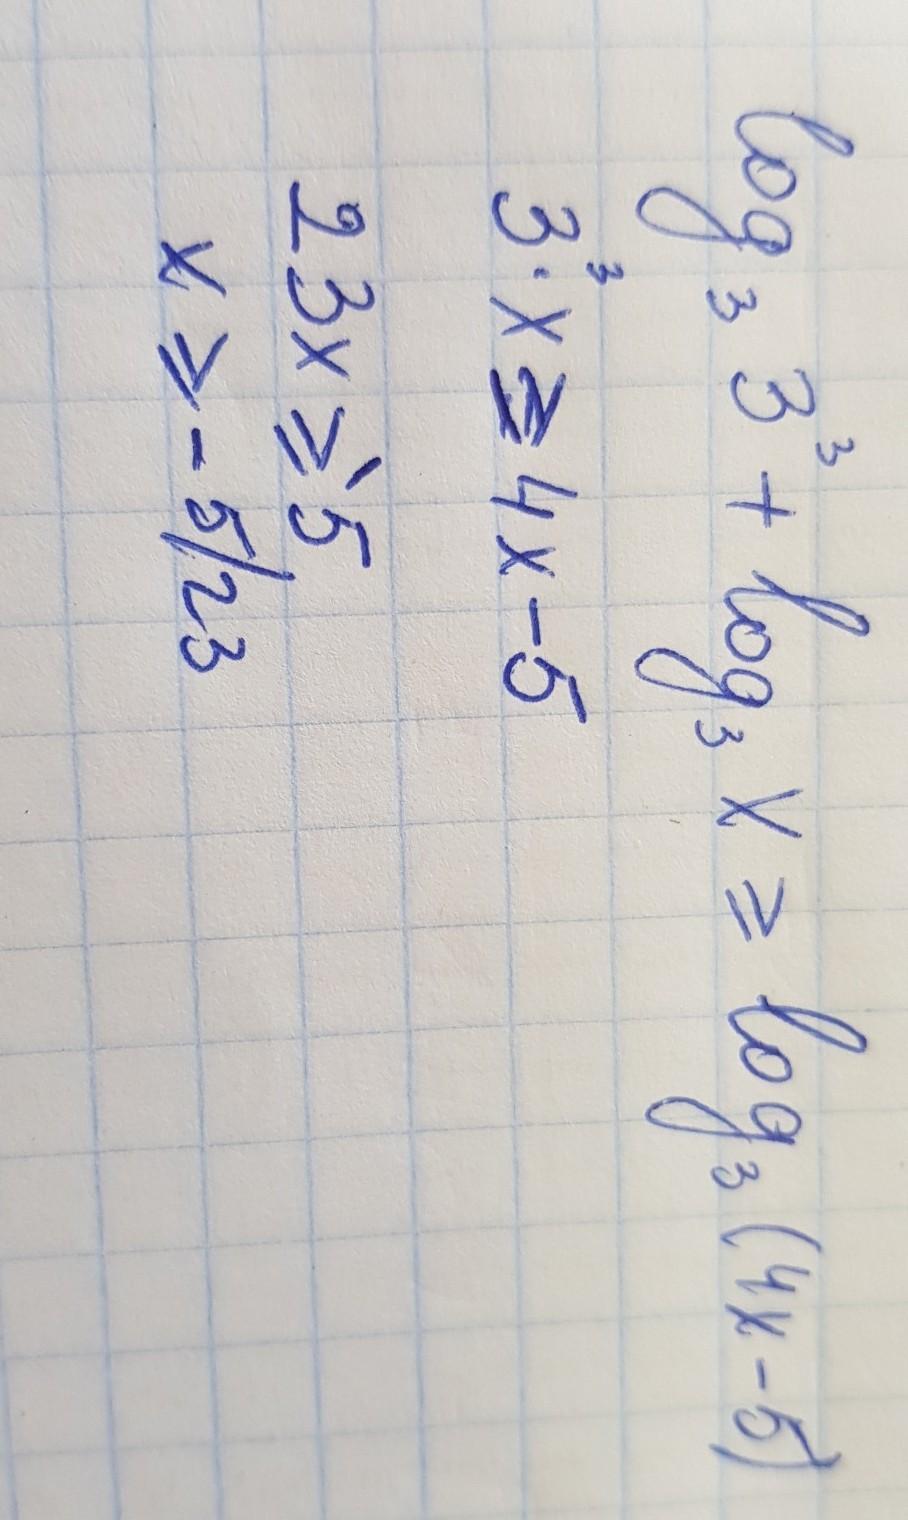 log₃ 3³ + log₃ x ≥ log₃ (4x - 5)
3³ · x ≥ 4x - 5
23x ≥ -5
x ≥ - 5/23